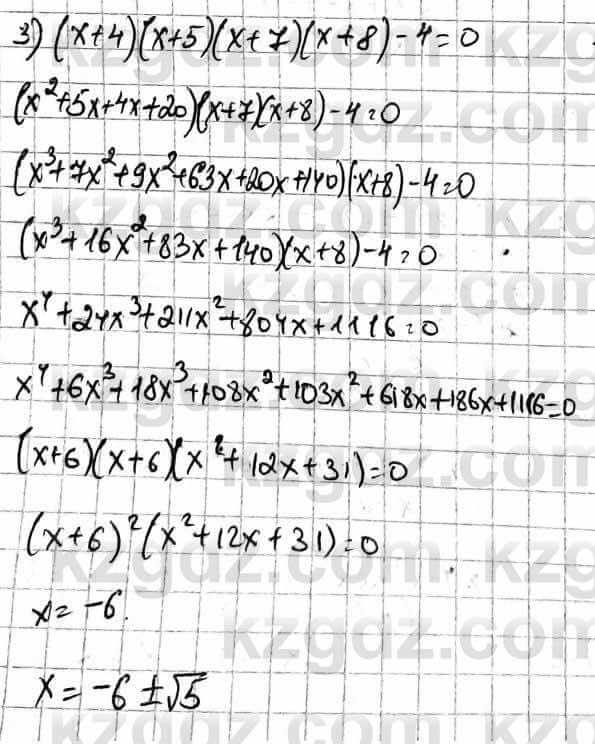 3) (x+4)(x+5)(x+7)(x+8)-4=0
(x²+5x+4x+20)(x+7)(x+8)-4=0
(x³+7x²+9x²+63x+20x+140)(x+8)-4=0
(x³+16x²+83x+140)(x+8)-4=0
x⁴+24x³+211x²+804x+1116=0
x⁴+6x³+18x³+108x²+103x²+618x+186x+1116=0
(x+6)(x+6)(x²+12x+31)=0
(x+6)²(x²+12x+31)=0
x=-6.
x=-6±√5
kzgdz.com